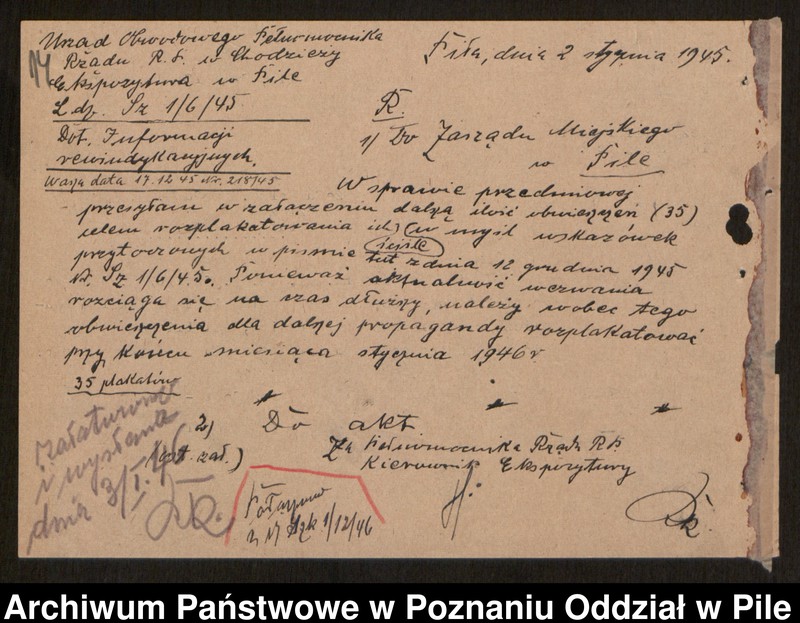 Urząd Obwodowego Pełnomocnika
Rządu R.P. w Chodzieży
Ekspozytura w Pile
L.dz. Sz 1/6/45
Piła, dnia 2 stycznia 1945.
R.
Dot. Informacji
rewindykacyjnych.
Wasza data 17.12 45 Nr. 218/45
1/ Do Zarządu Miejskiego
w Pile
W sprawie przedmiowej
przesyłam w załączeniu dalszą ilość obwieszczeń (35)
celem rozplakatowania ich w myśl wskazówek
przytoczonych w piśmie tut z dnia 12 grudnia 1945
Nr. Sz 1/6/45. Ponieważ aktualność wezwania
rozciąga się na czas dłuższy, należy wobec tego
obwieszczenia dla dalszej propagandy rozplakatować
przy końcu miesiąca stycznia 1946 r
35 plakatów
2) Do akt
Za Pełnomocnika Rządu R.P.
Kierownik Ekspozytury
załatwiono
i wysłano
dnia 3/I.46
1/12/46
Archiwum Państwowe w Poznaniu Oddział w Pile